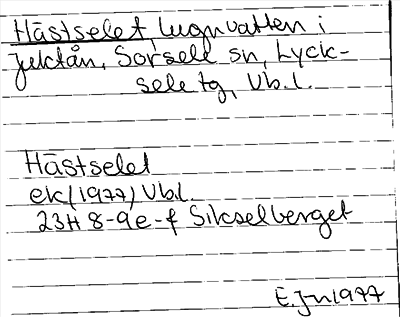 Hästselet, lugnvatten i
Juktån, Sorsele sn, Lyck-
sele tg, Vb.l.
Hästselet
ek (1977) Vb.l.
23H 8-9e-f Sikselberget
E. Jn 1977